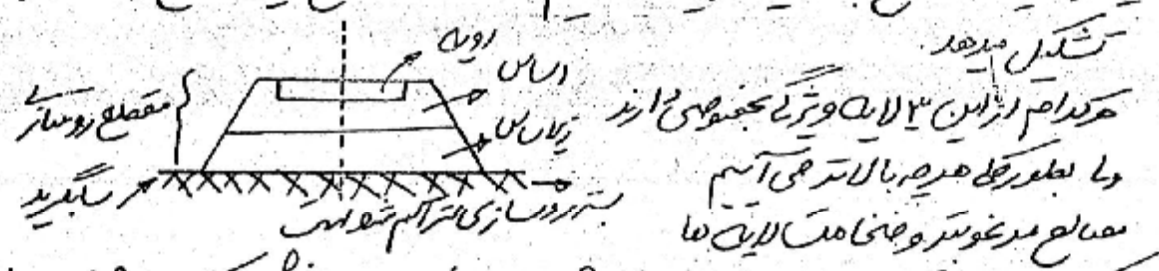 تشکیل میدهد.
هرکدام از این ۳ لایه ویژگی بخصوصی دارند
ولی بطورکلی هرچه بالاتر می آئیم
مصالح مرغوبتر و ضخامت لایه ها
رویه
اساس
زیراساس
مقطع روسازی
سابگرید
بستر روسازی متراکم شده است